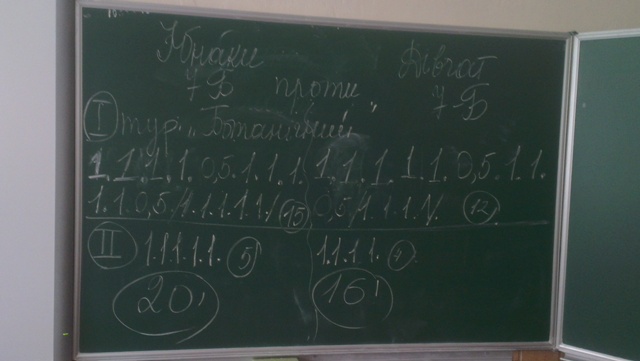 Юнаки Дівчат
7-Б проти 7-Б
I тур „Ботанічний”
1.1.1.1.0,5.1.1.1. 1.1.1.1.1.0,5.1.1.
1.1.0,5.1.1.1.1.1. 15 0,5.1.1.1. 12
II 1.1.1.1.1. 5 1.1.1.1. 4
20! 16!